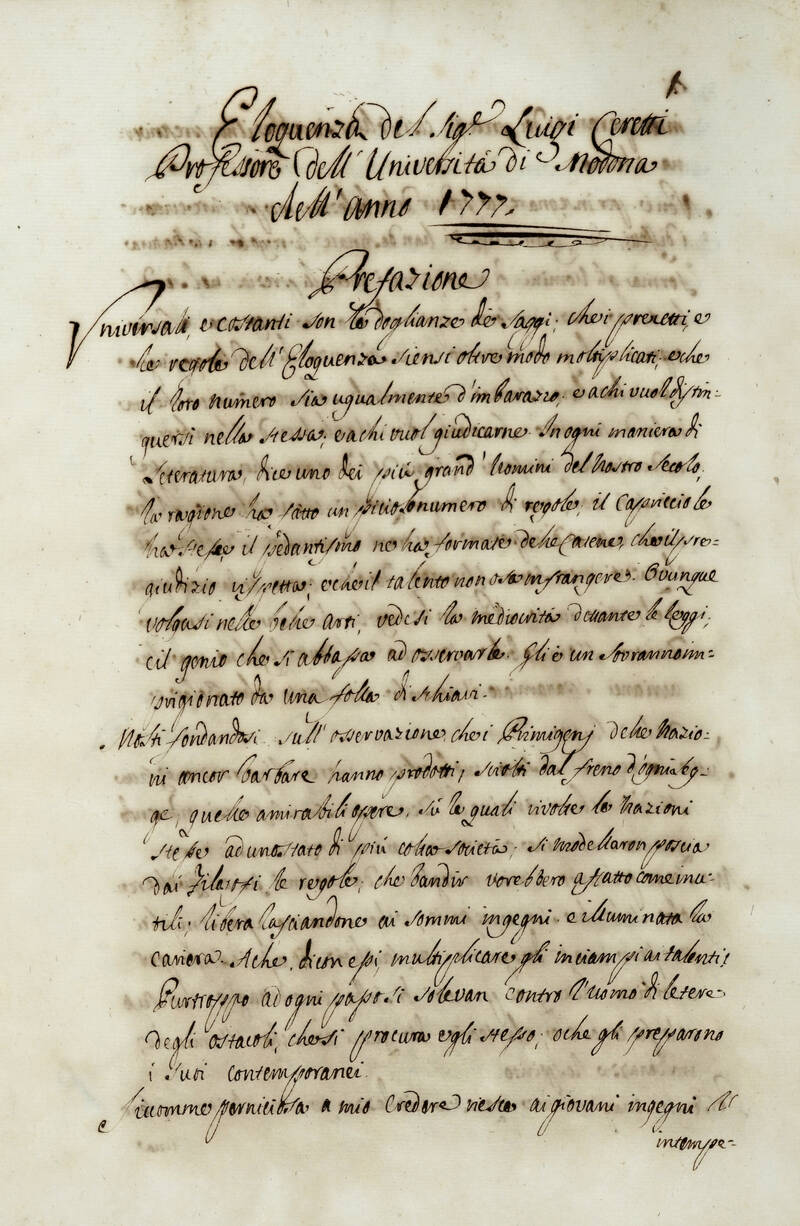 1.
Eloquenza del Sig.r Luigi Ceretti
Professore dell'Università di Modona
dell'anno 1777.
Prefazione
Universali, e costanti son le doglianze de Saggi, che i precetti, e
le regole dell'Eloquenza siensi oltre modo moltiplicati, e che
il loro numero sia ugualmente d'imbarazzo, e a chi vuol distin-
guersi nella stessa, e a chi vuol giudicarne. In ogni maniera di
Leteratura, dice uno dei più grand'homini del nostro secolo,
la ragione ha fatto un piciol numero di regole, il Capriccio le
ha stese, il pedantismo ne ha formate delle Catene, che il pre-
giudizio rispetta, e che il talento non osa infrangere. Ovunque
volgasi nelle belle arti, vedesi la mediocrità dettante le leggi,
e il genio che si abbassa ad osservarle. Egli è un Sovrano im-
prigionato da una folla di schiavi.
Molti fondandosi sull'osservazione, che i Primigenj delle Nazio-
ni ancor barbare hanno prodotti, sciolti dal freno d'ogni leg-
ge, quelle amirabili opere, su le quali rivolte le Nazioni
stesse ad uno stato di più colta società, si modellaron poscia
dai Filosofi le regole, che bandir vorebbero affatto come inu-
tili, libera lasciandone ai sommi ingegni e illuminata la
Cariera. A che, dicon essi, multiplicare gli inciampi ai talenti?
Purtroppo ad ogni passo si solevan contro l'uomo di letere
degli ostacoli, che si procura egli stesso, o che gli preparono
i suoi Contemporanei.
Siccome perniciosa a mio Credere riesce ai giovani ingegni
e
intempe-